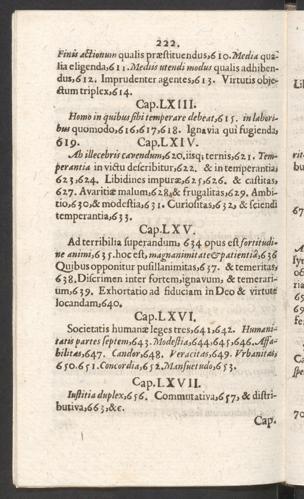 222.
Finis actionum qualis præstituendus, 610. Media qua-
lia eligenda, 611. Mediis utendi modus qualis adhiben-
dus, 612. Imprudenter agentes, 613. Virtutis obje-
ctum triplex, 614.
Cap. LXIII.
Homo in quibus sibi temperare debeat, 615. in labori-
bus quomodo, 616, 617, 618. Ignavia qui fugienda,
619.
Cap. LXIV.
Ab illecebris cavendum, 620, iisq; ternis, 621. Tem-
perantia in victu describitur, 622. & in temperantia,
623, 624. Libidines impuræ, 625, 626. & castitas,
627. Avaritiæ malum, 628, & frugalitas, 629. Ambi-
tio, 630, & modestia, 631. Curiositas, 632, & sciendi
temperantia, 633.
Cap. LXV.
Ad terribilia superandum, 634 opus est fortitudi-
ne animi, 635. hoc est, magnanimitate & patientia, 636
Quibus opponitur pusillanimitas, 637. & temeritas,
638. Discrimen inter fortem, ignavum, & temerari-
um, 639. Exhortatio ad fiduciam in Deo & virtute
locandam, 640.
Cap. LXVI.
Societatis humanæ leges tres, 641, 642. Humani-
tatis partes septem, 643. Modestia, 644, 645, 646. Affa-
bilitas, 647. Candor, 648. Veracitas, 649. Urbanitas,
650. 651. Concordia, 652. Mansuetudo, 653.
Cap. LXVII.
Iustitia duplex, 656. Commutativa, 657, & distri-
butiva, 663, &c.
Cap.